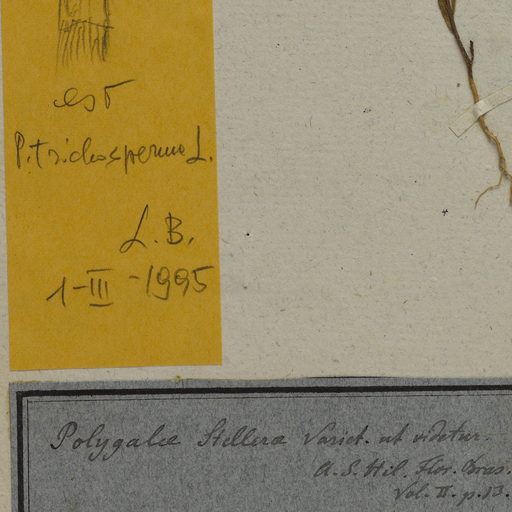 est
P. trichosperma L.
L. B.
1-III-1995
Polygalæ Stelleræ Variet. ut videtur.
A. S. Hil. Flor. Bras.
Vol. II. p. 13.